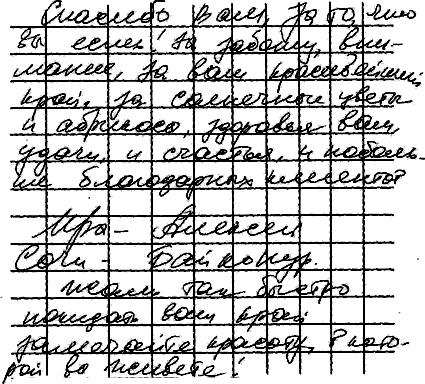 Спасибо Вам, за то, что
вы есть! За заботу, вни-
мание, за ваш красивейший
край, за солнечные цветы
и абрикосы, здоровья вам,
удачи, и счастья, и поболь-
ше благодарных клиентов
Ира - Алексей
Сочи - Байконур.
Жаль так быстро
покидать ваш край
замечайте красоту, в кото-
рой вы живете!